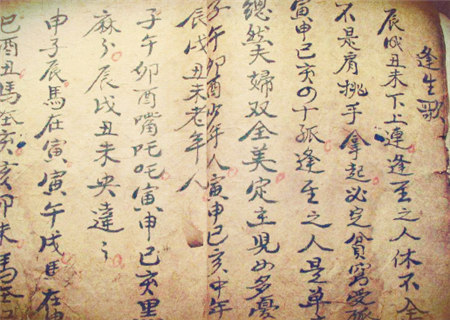 逢生歌
辰戌丑未下上連逢至之人休不全
不是肩挑手拿起必定貧窮受孤
寅申巳亥十孤逢至之人是单
總然夫婦双全美定主児女多憂
子午卯酉少年人寅申巳亥中年
辰戌丑未老年人
子午卯酉嘴吒吒寅申巳亥黑
麻辰戌丑未央違
申子辰馬在寅寅午戌馬在
巳酉丑馬在亥亥卯未馬在